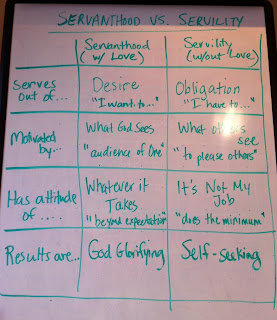 SERVANTHOOD VS. SERVILITY
Servanthood
(w/ Love)
Servility
(w/out Love)
Serves
out of...
Desire
"I want to..."
Obligation
"I have to..."
Motivated
by...
What God Sees
"audience of One"
What others
see
"to please others"
Has attitude
of ....
Whatever it
Takes
"beyond expectation"
It's Not My
Job
"does the minimum"
Results are...
God Glorifying
Self-seeking